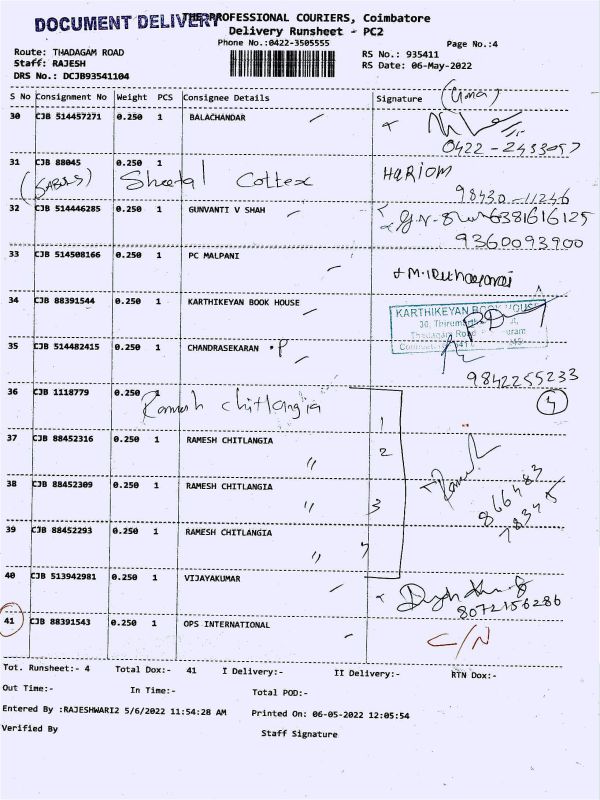 DOCUMENT DELIVERY
THE PROFESSIONAL COURIERS, Coimbatore
Delivery Runsheet - PC2
Phone No.:0422-3505555
Page No.:4
Route: THADAGAM ROAD
Staff: RAJESH
DRS No.: DCJB93541104
RS No.: 935411
RS Date: 06-May-2022
S No Consignment No Weight PCS Consignee Details Signature
(Uma)
30 CJB 514457271 0.250 1 BALACHANDAR
0422-2433057
31 CJB 88045 0.250 1
Sheetal Cottex
HARIOM
98430-11246
32 CJB 514446285 0.250 1 GUNVANTI V SHAH
6381616125
9360093900
33 CJB 514508166 0.250 1 PC MALPANI
34 CJB 88391544 0.250 1 KARTHIKEYAN BOOK HOUSE
KARTHIKEYAN BOOK HOUSE
Thadagam Road
35 CJB 514482415 0.250 1 CHANDRASEKARAN . P
9842255233
36 CJB 1118779 0.250 1
Ramesh chitlangia
1
4
37 CJB 88452316 0.250 1 RAMESH CHITLANGIA
" 2
38 CJB 88452309 0.250 1 RAMESH CHITLANGIA
" 3
Ramesh
866483
78345
39 CJB 88452293 0.250 1 RAMESH CHITLANGIA
" 4
40 CJB 513942981 0.250 1 VIJAYAKUMAR
8072156286
41 CJB 88391543 0.250 1 OPS INTERNATIONAL
C/N
Tot. Runsheet:- 4 Total Dox:- 41 I Delivery:- II Delivery:- RTN Dox:-
Out Time:- In Time:- Total POD:-
Entered By :RAJESHWARI2 5/6/2022 11:54:28 AM Printed On: 06-05-2022 12:05:54
Verified By Staff Signature